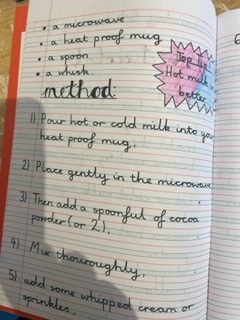 • a microwave
• a heat proof mug
• a spoon
• a whisk.
Top tip
Hot milk is
better
method:
1) Pour hot or cold milk into your
heat proof mug,
2) Place gently in the microwave
3) Then add a spoonful of cocoa
powder (or 2),
4) Mix thouroughly,
5) add some whipped cream or
sprinkles,